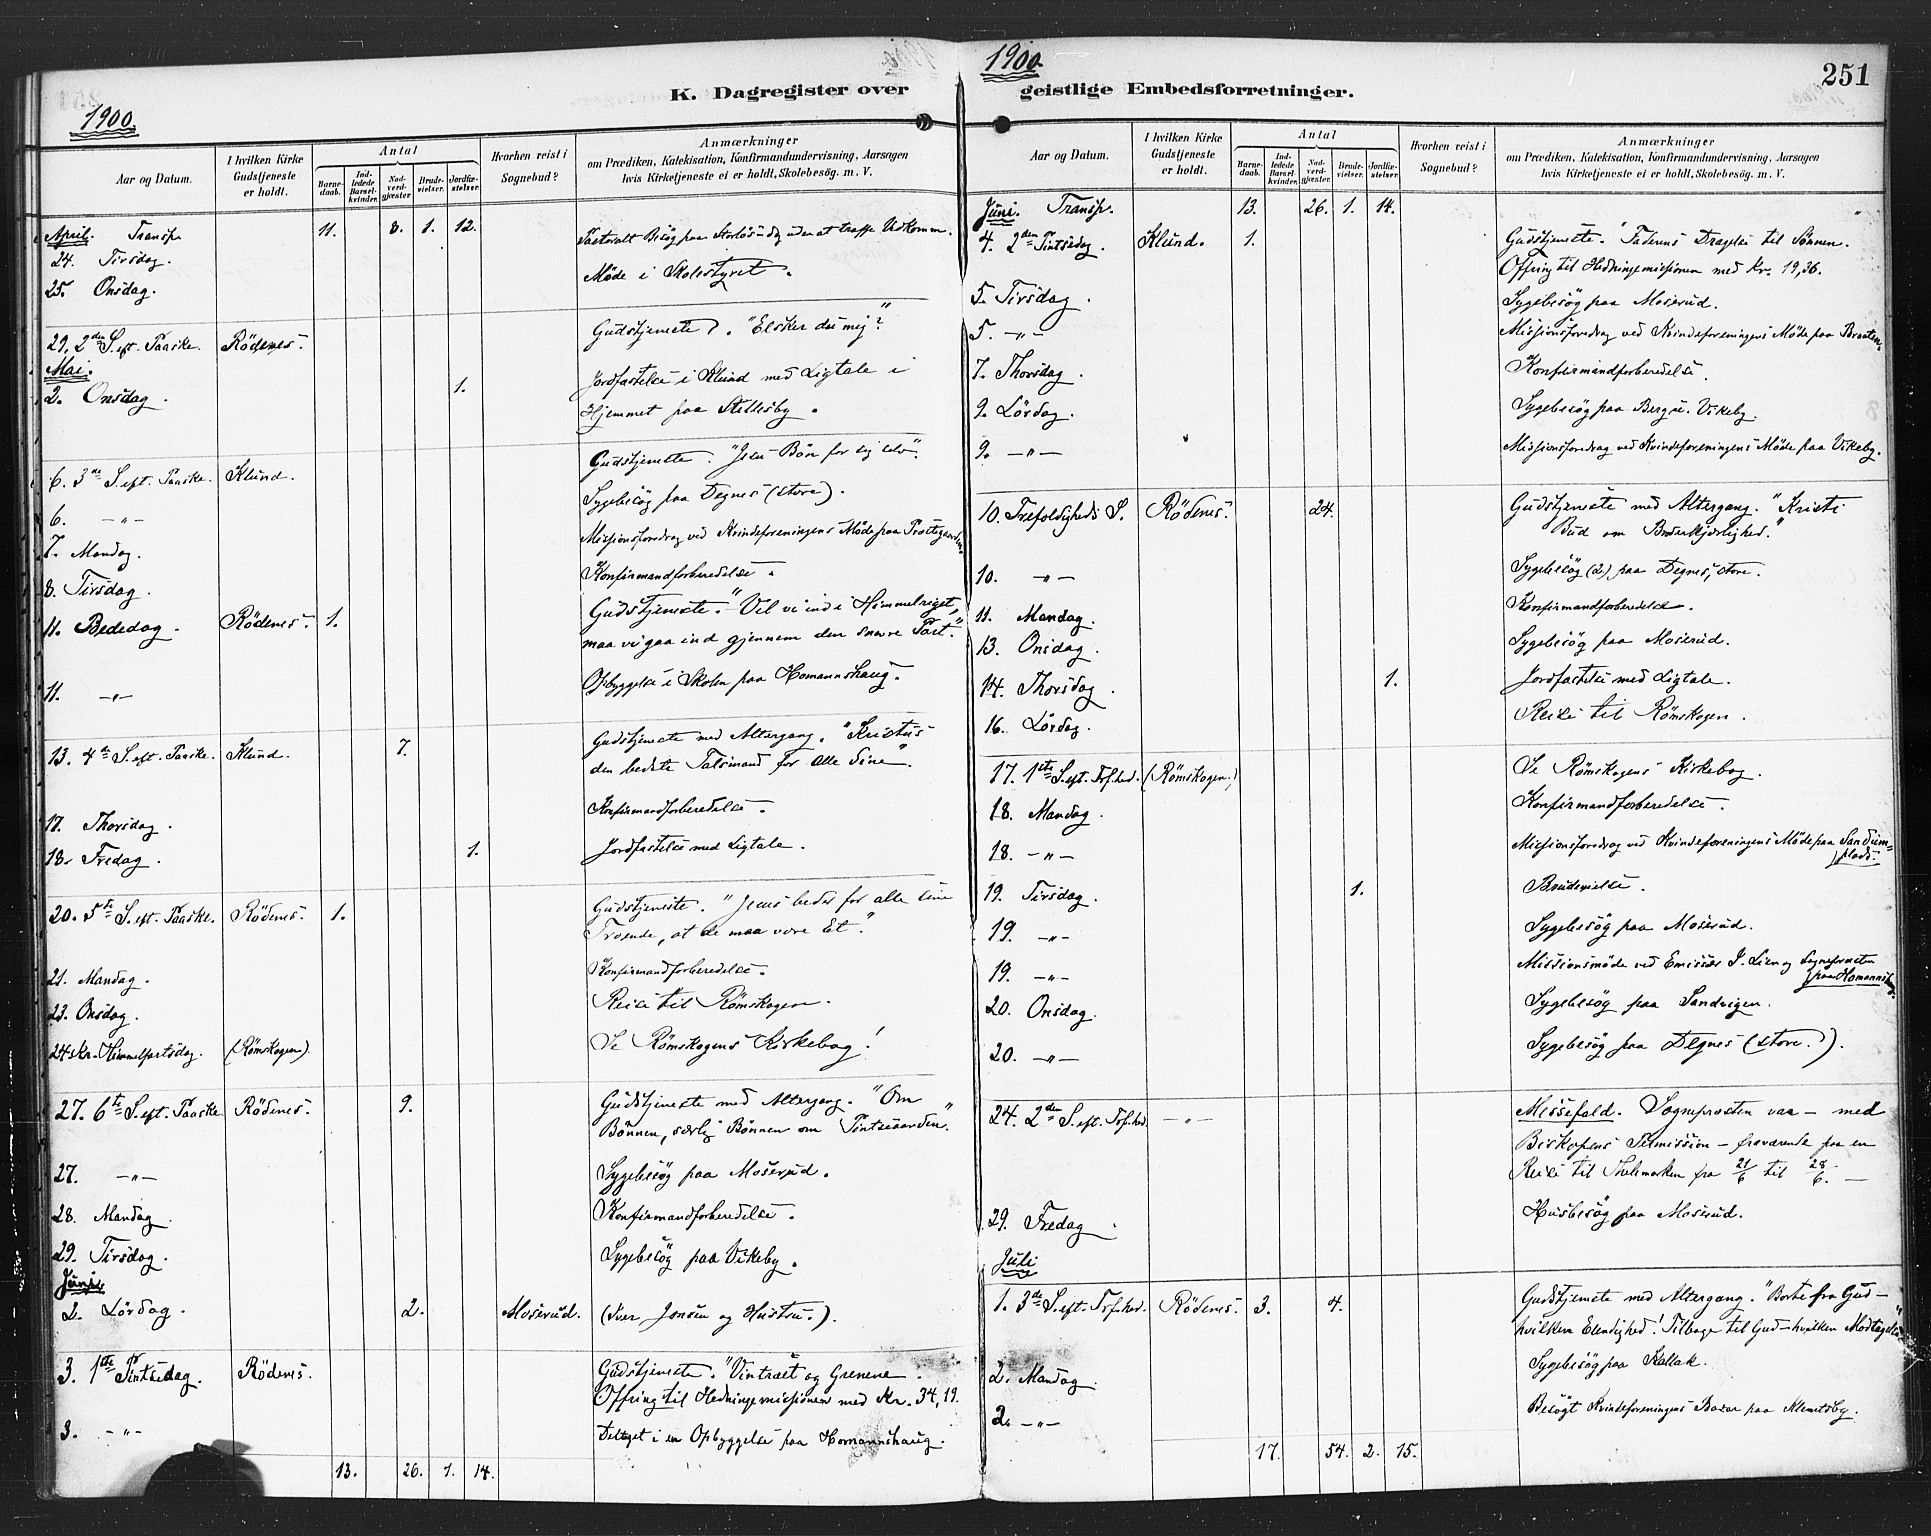 1900.
K. Dagregister over
Aar og Datum.
I hvilken Kirke Gudstjeneste er holdt.
Antal
Barnedaab.
Indledede Barselkvinder.
Nadverdgjæster.
Brudevielser.
Jordfæstelser.
Hvorhen reist i Sognebud?
Anmærkninger
om Prædiken, Katekisation, Konfirmandundervisning, Aarsagen
hvis Kirketjeneste ei er holdt, Skolebesøg. m. V.
April. Transp. 11. 8. 1. 12.
24. Tirsdag. Pastoralt Besøg paa uden at træffe Vedkomm.
25. Onsdag. Møde i Skolestyret.
29. 2den S. eft. Paaske. Rödenes. Gudstjeneste. "Elsker du mig?"
Mai.
2. Onsdag. 1. Jordfæstelse i Klund med Ligtale i
Hjemmet paa
6. 3die S. eft. Paaske. Klund. Gudstjeneste. "Jesu Bøn for sig selv"
6. -"- Sygebesög paa Degnes (store).
7. Mandag. Missionsforedrag ved Kvindeforeningens Møde paa Præstegaarden.
8. Tirsdag. Konfirmandforberedelse.
11. Bededag. Rödenes. 1. Gudstjeneste. "Vil vi ind i Himmelriget,
maa vi gaa ind gjennem den snevre Port."
11. -"- Opbyggelse i Skolen paa Homannshaug.
13. 4de S. eft. Paaske. Klund. 7. Gudstjeneste med Altergang. "Kristus
den bedste Talsmand for alle sine".
17. Thorsdag. Konfirmandforberedelse.
18. Fredag. 1. Jordfæstelse med Ligtale.
20. 5te S. eft. Paaske. Rödenes. 1. Gudstjeneste. "Jesus beder for alle sine
Troende, at de maa være Et."
21. Mandag. Konfirmandforberedelse.
23. Onsdag. Reise til Römskogen.
24. Kr. Himmelfartsdag. (Römskogen). Se Römskogens Kirkebog!
27. 6te S. eft. Paaske Rödenes. 9. Gudstjeneste med Altergang. "Om
Bønnen, særlig Bønnen om Pintseaanden."
27. -"- Sygebesög paa Moserud.
28. Mandag. Konfirmandforberedelse.
29. Tirsdag. Sygebesög paa Vikeby.
Juni
2. Lördag. 2. Moserud. (Iver Jensen og Hustru.).
3. 1ste Pintsedag. Rödenes. Gudstjeneste. "Vintræet og Grenene".
Offring til Hedningemissionen med Kr. 34,19.
3. -"- Deltaget i en Opbyggelse paa Homannshaug.
13. 26. 1. 14.
1900.
geistlige Embedsforretninger.
251
Aar og Datum.
I hvilken Kirke Gudstjeneste er holdt.
Antal
Barnedaab.
Indledede Barselkvinder.
Nadverdgjæster.
Brudevielser.
Jordfæstelser.
Hvorhen reist i Sognebud?
Anmærkninger
om Prædiken, Katekisation, Konfirmandundervisning, Aarsagen
hvis Kirketjeneste ei er holdt, Skolebesøg. m. V.
Juni. Transp. 13. 26. 1. 14.
4. 2den Pintsedag. Klund. 1. Gudstjeneste. "Faderens Dragelse til Sønnen."
Offring til Hedningemissionen med Kr. 19,36.
5. Tirsdag. Sygebesög paa Moserud.
5. -"- Missionsforedrag ved Kvindeforeningens Møde paa Braaten.
7. Thorsdag. Konfirmandforberedelse.
9. Lördag. Sygebesög paa Berger. Vikeby.
9. -"- Missionsforedrag ved Kvindeforeningens Møde paa Vikeby.
10. Trefoldigheds S. Rödenes. 24. Gudstjeneste med Altergang. "Kristi
Bud om Broderkjærlighed."
10. -"- Sygebesög (2) paa Degnes, store.
11. Mandag. Konfirmandforberedelse.
13. Onsdag. Sygebesög paa Moserud.
14. Thorsdag. 1. Jordfæstelse med Ligtale.
16. Lördag. Reise til Römskogen.
17. 1ste S. eft. Trf.hed. (Römskogen.) Se Römskogens Kirkebog.
18. Mandag. Konfirmandforberedelse.
18. -"- Missionsforedrag ved Kvindeforeningens Møde paa Sandum-
plads.
19. Tirsdag. 1. Brudevielse.
19. -"- Sygebesög paa Moserud.
19. -"- Missionsmøde ved Emissær J. Lien og Sognepræsten
paa Homannshaug.
20. Onsdag. Sygebesög paa Sandvigen.
20. -"- Sygebesög paa Degnes (store.).
24. 2den S. eft. Trf.hed. -"- Messefald. Sognepræsten var - med
Biskopens Permission - fraværende paa en
Reise til Thelemarken fra 21/6 til 28/6. -
29. Fredag. Husbesög paa Moserud.
Juli
1. 3die S. eft. Trf.hed. Rödenes. 3. 4. Gudstjeneste med Altergang. "Borte fra Gud -
hvilken Elendighed! Tilbage til Gud - hvilken Modtagelse"
2. Mandag. Sygebesög paa Kallak.
2. -"- Besögt Kvindeforeningens Bazar paa Klemetsby.
17. 54. 2. 15.